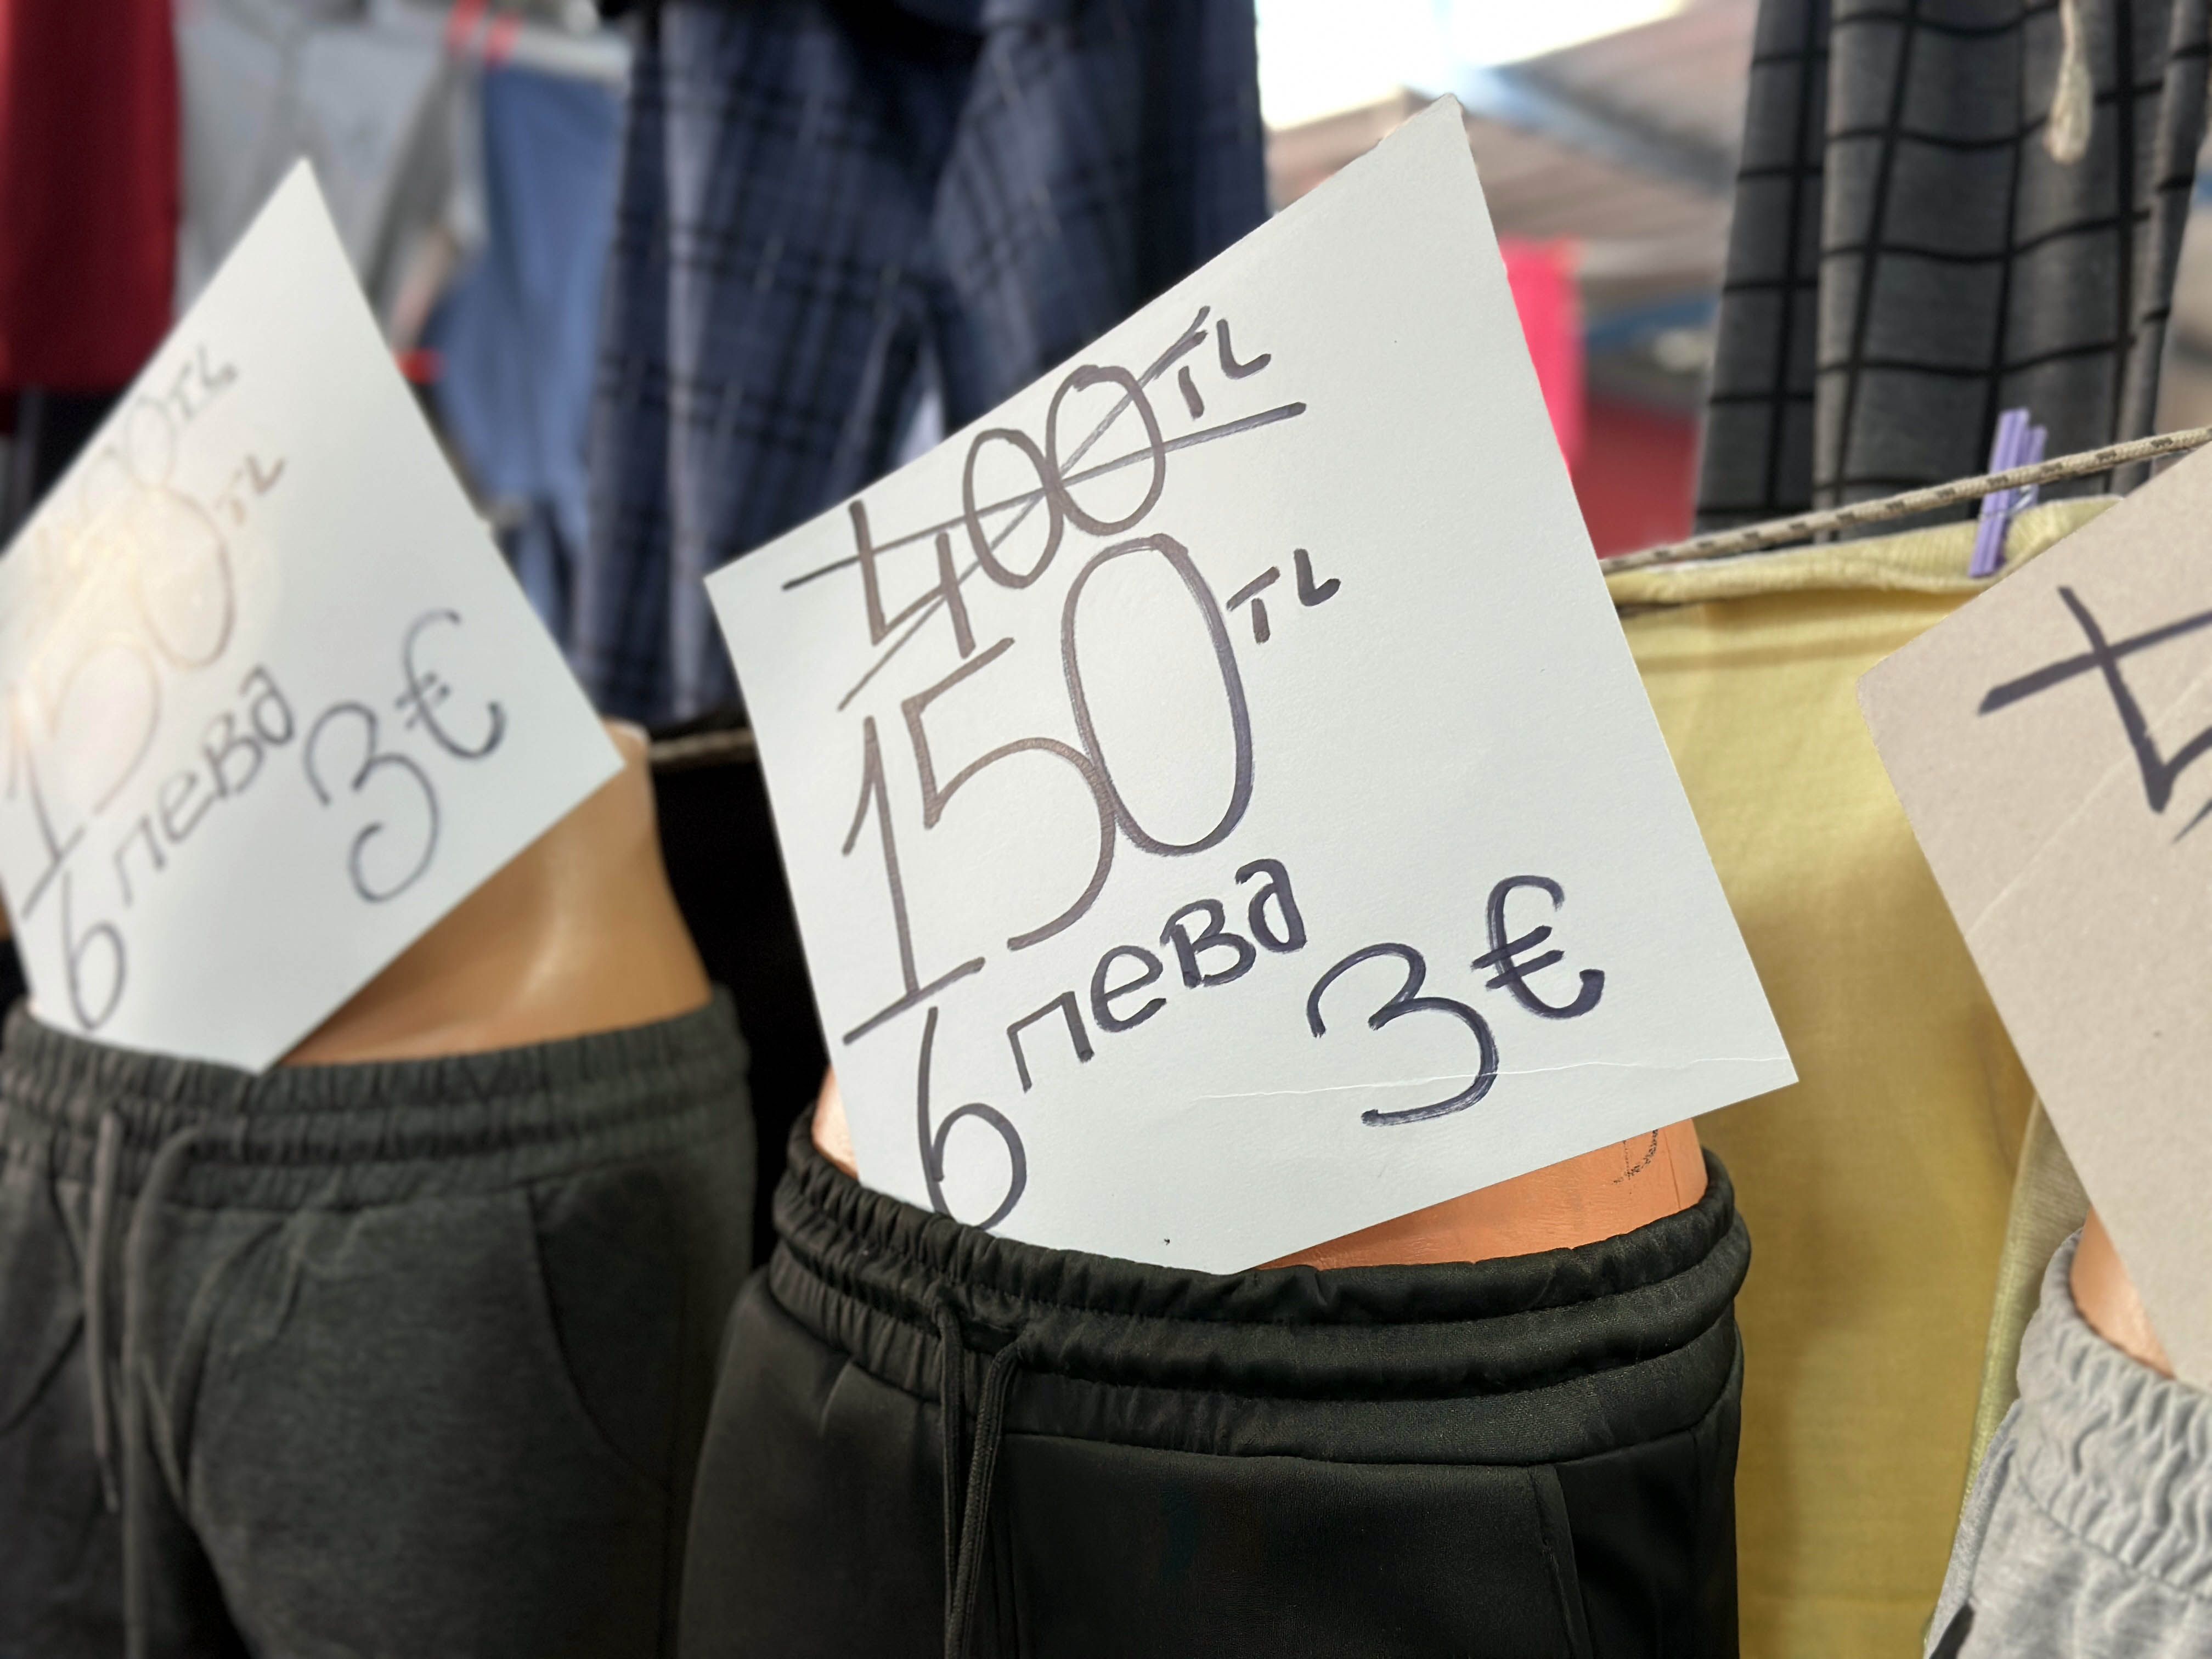 150 TL
6 лева 3 €
400 TL
150 TL
6 лева 3 €